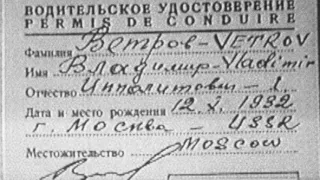 ВОДИТЕЛЬСКОЕ УДОСТОВЕРЕНИЕ
PERMIS DE CONDUIRE
Фамилия Ветров-VETROV
Имя Владимир-Vladimir
Отчество Ипполитович - I.
Дата и место рождения 12. X. 1932
г. Москва - USSR
Местожительство Moscow